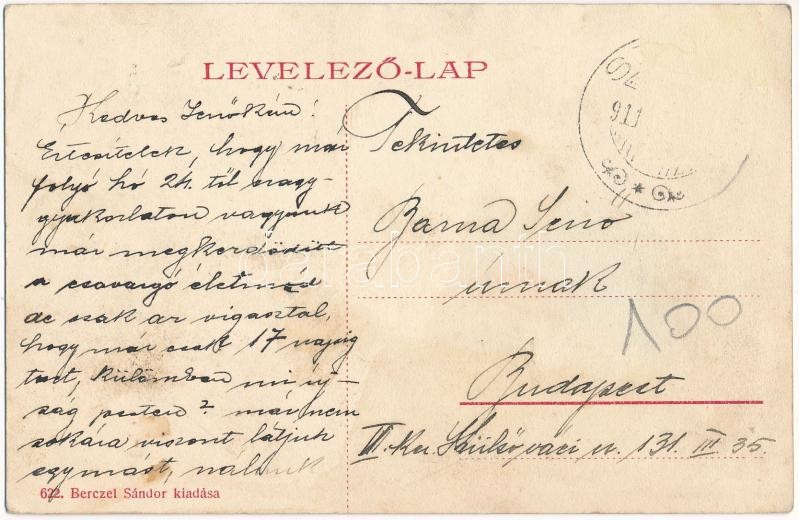 LEVELEZŐ-LAP
Kedves Jenőkém!
Értesítelek, hogy mái
folyó hó 24. től nagy-
gyakorlaton vagyunk
már megkezdődött
a csavargó életmód
de csak az vigasztal,
hogy már csak 17 napig
tart, külömben mi új-
ság pesten? már nem
sokára viszont látjuk
egymást, nálunk
Tekintetes
Barna Jenő
úrnak
Budapest
III. ker. Külső váci u. 131. III. 35.
100
911
622. Berczel Sándor kiadása
darabanth